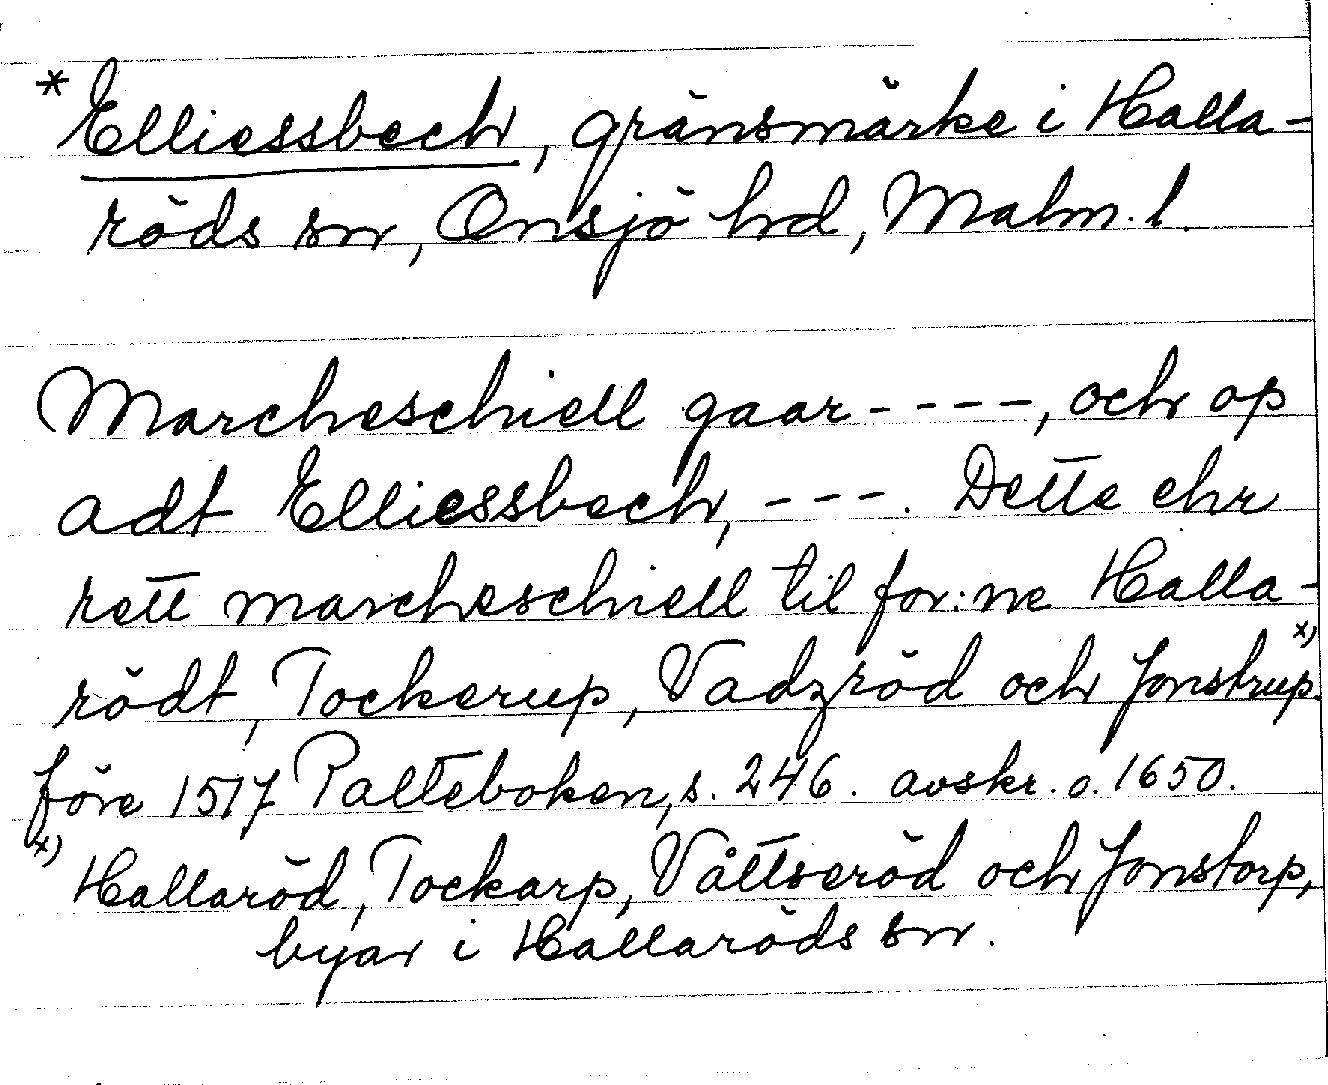 * Elliessbech, gränsmärke i Halla-
röds sn, Onsjö hd, Malm. l.
Marcheschiell gaar - - - -, och op
adt Elliessbech, - - -. Dette ehr
rett marcheschiell til for:ne Halla-
rödt, Tockerup, Vadzröd och Jonstrup. x)
före 1517 Palteboken, s. 246. avskr. o. 1650.
x) Hallaröd, Tockarp, Våttseröd och Jonstorp,
byar i Hallaröds sn.